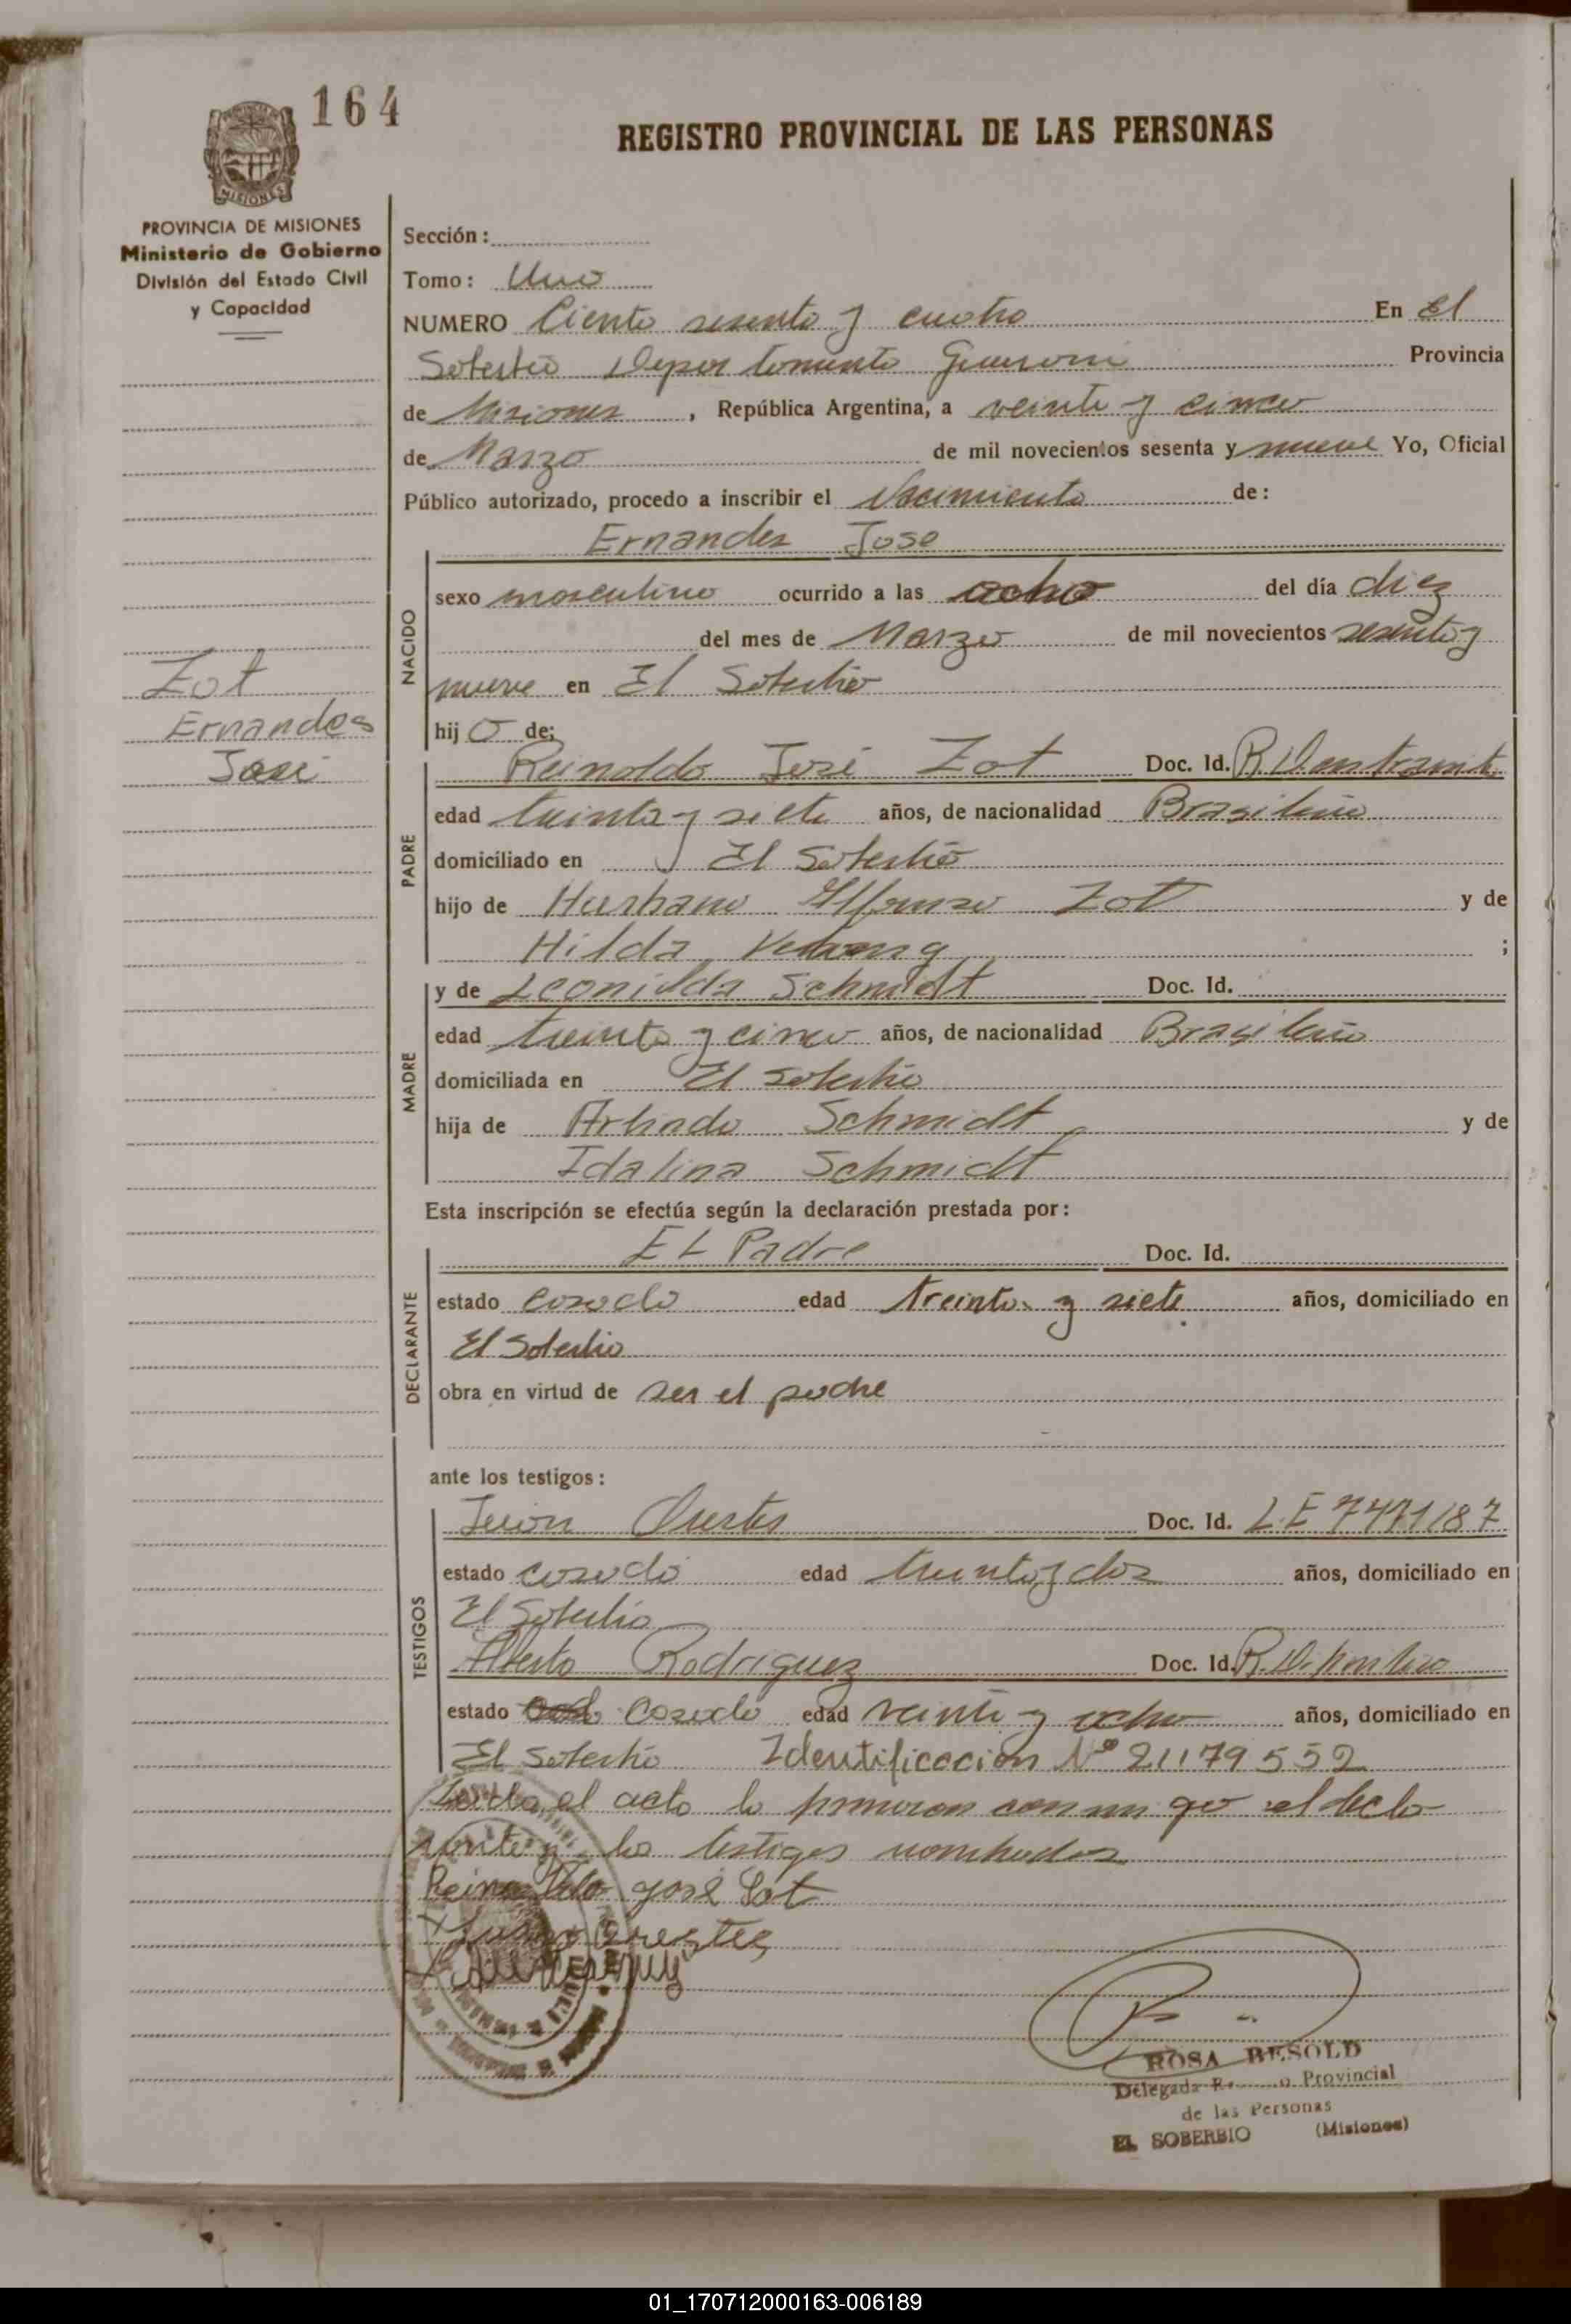 164
REGISTRO PROVINCIAL DE LAS PERSONAS
MISIONES
PROVINCIA DE MISIONES
Ministerio de Gobierno
División del Estado Civil
y Capacidad
Zot
Ernandes
José
Sección:
Tomo: Uno
NUMERO Ciento sesenta y cuatro En El
Soberbio Departamento Guaraní Provincia
de Misiones, República Argentina, a veinte y cinco
de Marzo de mil novecientos sesenta y nueve Yo, Oficial
Público autorizado, procedo a inscribir el Nacimiento de:
Ernandes Jose
NACIDO
sexo masculino ocurrido a las ocho del día diez
del mes de Marzo de mil novecientos sesenta y
nueve en El Soberbio
hij o de;
PADRE
Reinoldo José Zot Doc. Id.
edad treinta y siete años, de nacionalidad Brasileño
domiciliado en El Soberbio
hijo de Alfonso Zot y de
Hilda ;
MADRE
y de Leonilda Schmidt Doc. Id.
edad treinta y cinco años, de nacionalidad Brasileña
domiciliada en El Soberbio
hija de Schmidt y de
Idalina Schmidt
Esta inscripción se efectúa según la declaración prestada por:
DECLARANTE
EL Padre Doc. Id.
estado casado edad treinta y siete años, domiciliado en
El Soberbio
obra en virtud de ser el padre
ante los testigos:
TESTIGOS
Juan Orestes Doc. Id. L.E 7471187
estado casado edad treinta y dos años, domiciliado en
El Soberbio
Alberto Rodriguez Doc. Id.
estado casado edad veinte y ocho años, domiciliado en
El Soberbio Identificacion Nº 21179552
Leida el acto lo firmaron con migo el decla
rante y los testigos nombrados
Reinoldo José Sot
Juan Orestes
ROSA BESOLD
Delegada Provincial
de las Personas
EL SOBERBIO (Misiones)
01_170712000163-006189